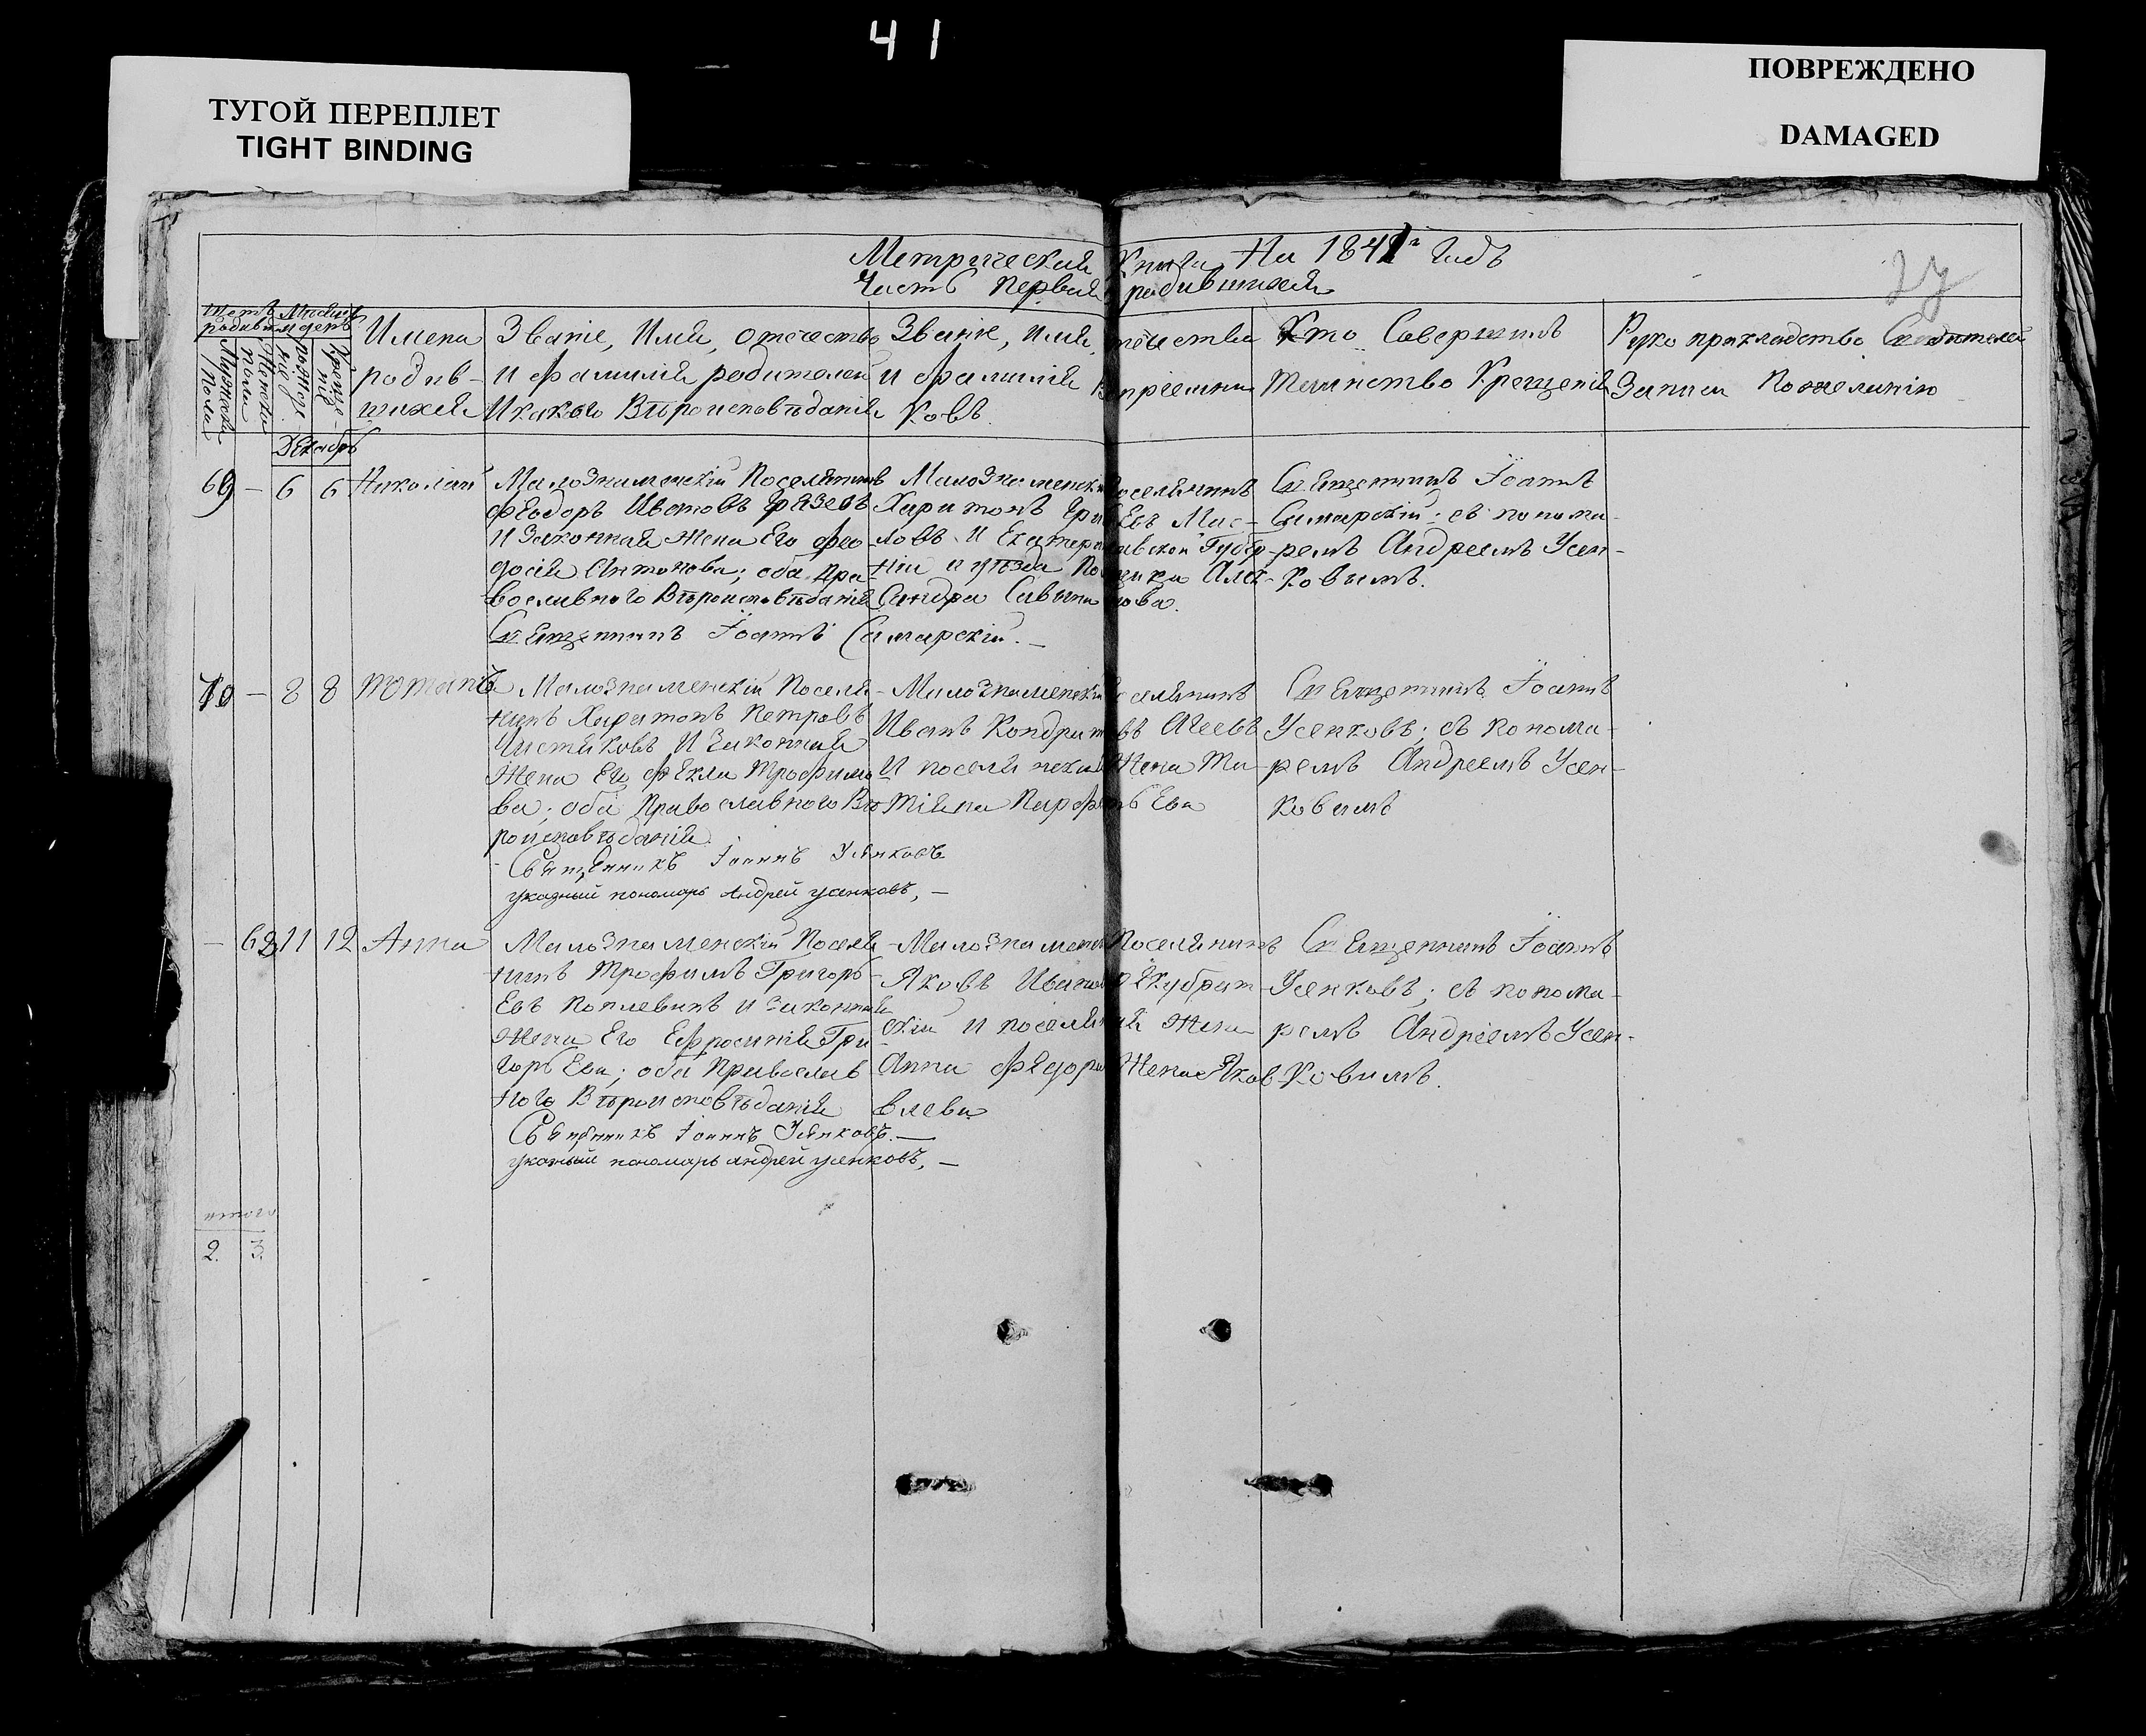 41
ТУГОЙ ПЕРЕПЛЕТ
TIGHT BINDING
ПОВРЕЖДЕНО
DAMAGED
Метрической Книги На 1841 Годъ
Часть Первая родившихся
27
Имена
родив-
шихся
Званіе, Имя, отечество
и фамилія родителей
И какого Вѣроисповѣданія
Званіе, имя, отечества
и фамилія Воспріемни
ковъ.
Кто Совершилъ
Таинство Крещенія
Рукоприкладство Свидетелей
Записи По желанію
Декабрь
69 - 6 6 Николай
МалоЗнаменскій Поселянинъ
Феодоръ Ивановъ
И Законная Жена Его Фео
досія Антонова; оба Пра-
вославнаго Вѣроисповѣданія
Священникъ Іоаннъ Самарскій.
МалоЗнаменскій Поселянинъ
Харитонъ Мас-
ловъ И Екатеринославской Губер
ніи и уѣзда Алек-
сандра
Священникъ Іоаннъ
Самарскій; съ понома-
ремъ Андреемъ Усен-
ковымъ.
70 - 8 8
МалоЗнаменскій Поселя-
нинъ Харитонъ Петровъ
Чистяковъ И Законная
Жена Его Фекла Трофимо
ва; оба Православного Вѣ
роисповѣданія.
Священникъ Іоаннъ Усѣнковъ
указный пономарь Андрей усенковъ,
МалоЗнаменскій Поселянинъ
Иванъ Агеевъ
И поселянская Жена Та-
тіяна
Священникъ Іоаннъ
Усенковъ; съ понома-
ремъ Андреемъ Усен-
ковымъ
- 62 11 12 Анна
МалоЗнаменскій Поселя
нинъ Трофимъ Григорь-
Евъ и законная
Жена Его Ефросинія Гри
горьЕва; оба Православ
ного Вѣроисповѣданія
Священникъ Іоаннъ Усѣнковъ.
указный пономарь андрей усенковъ,
МалоЗнаменскій Поселянинъ
Яковъ Ивановъ
и поселянская Жена
Анна Федорова Жена Яков
влева
Священникъ Іоаннъ
Усенковъ; съ понома-
ремъ Андреемъ Усен-
ковымъ.
итого
2. 3.